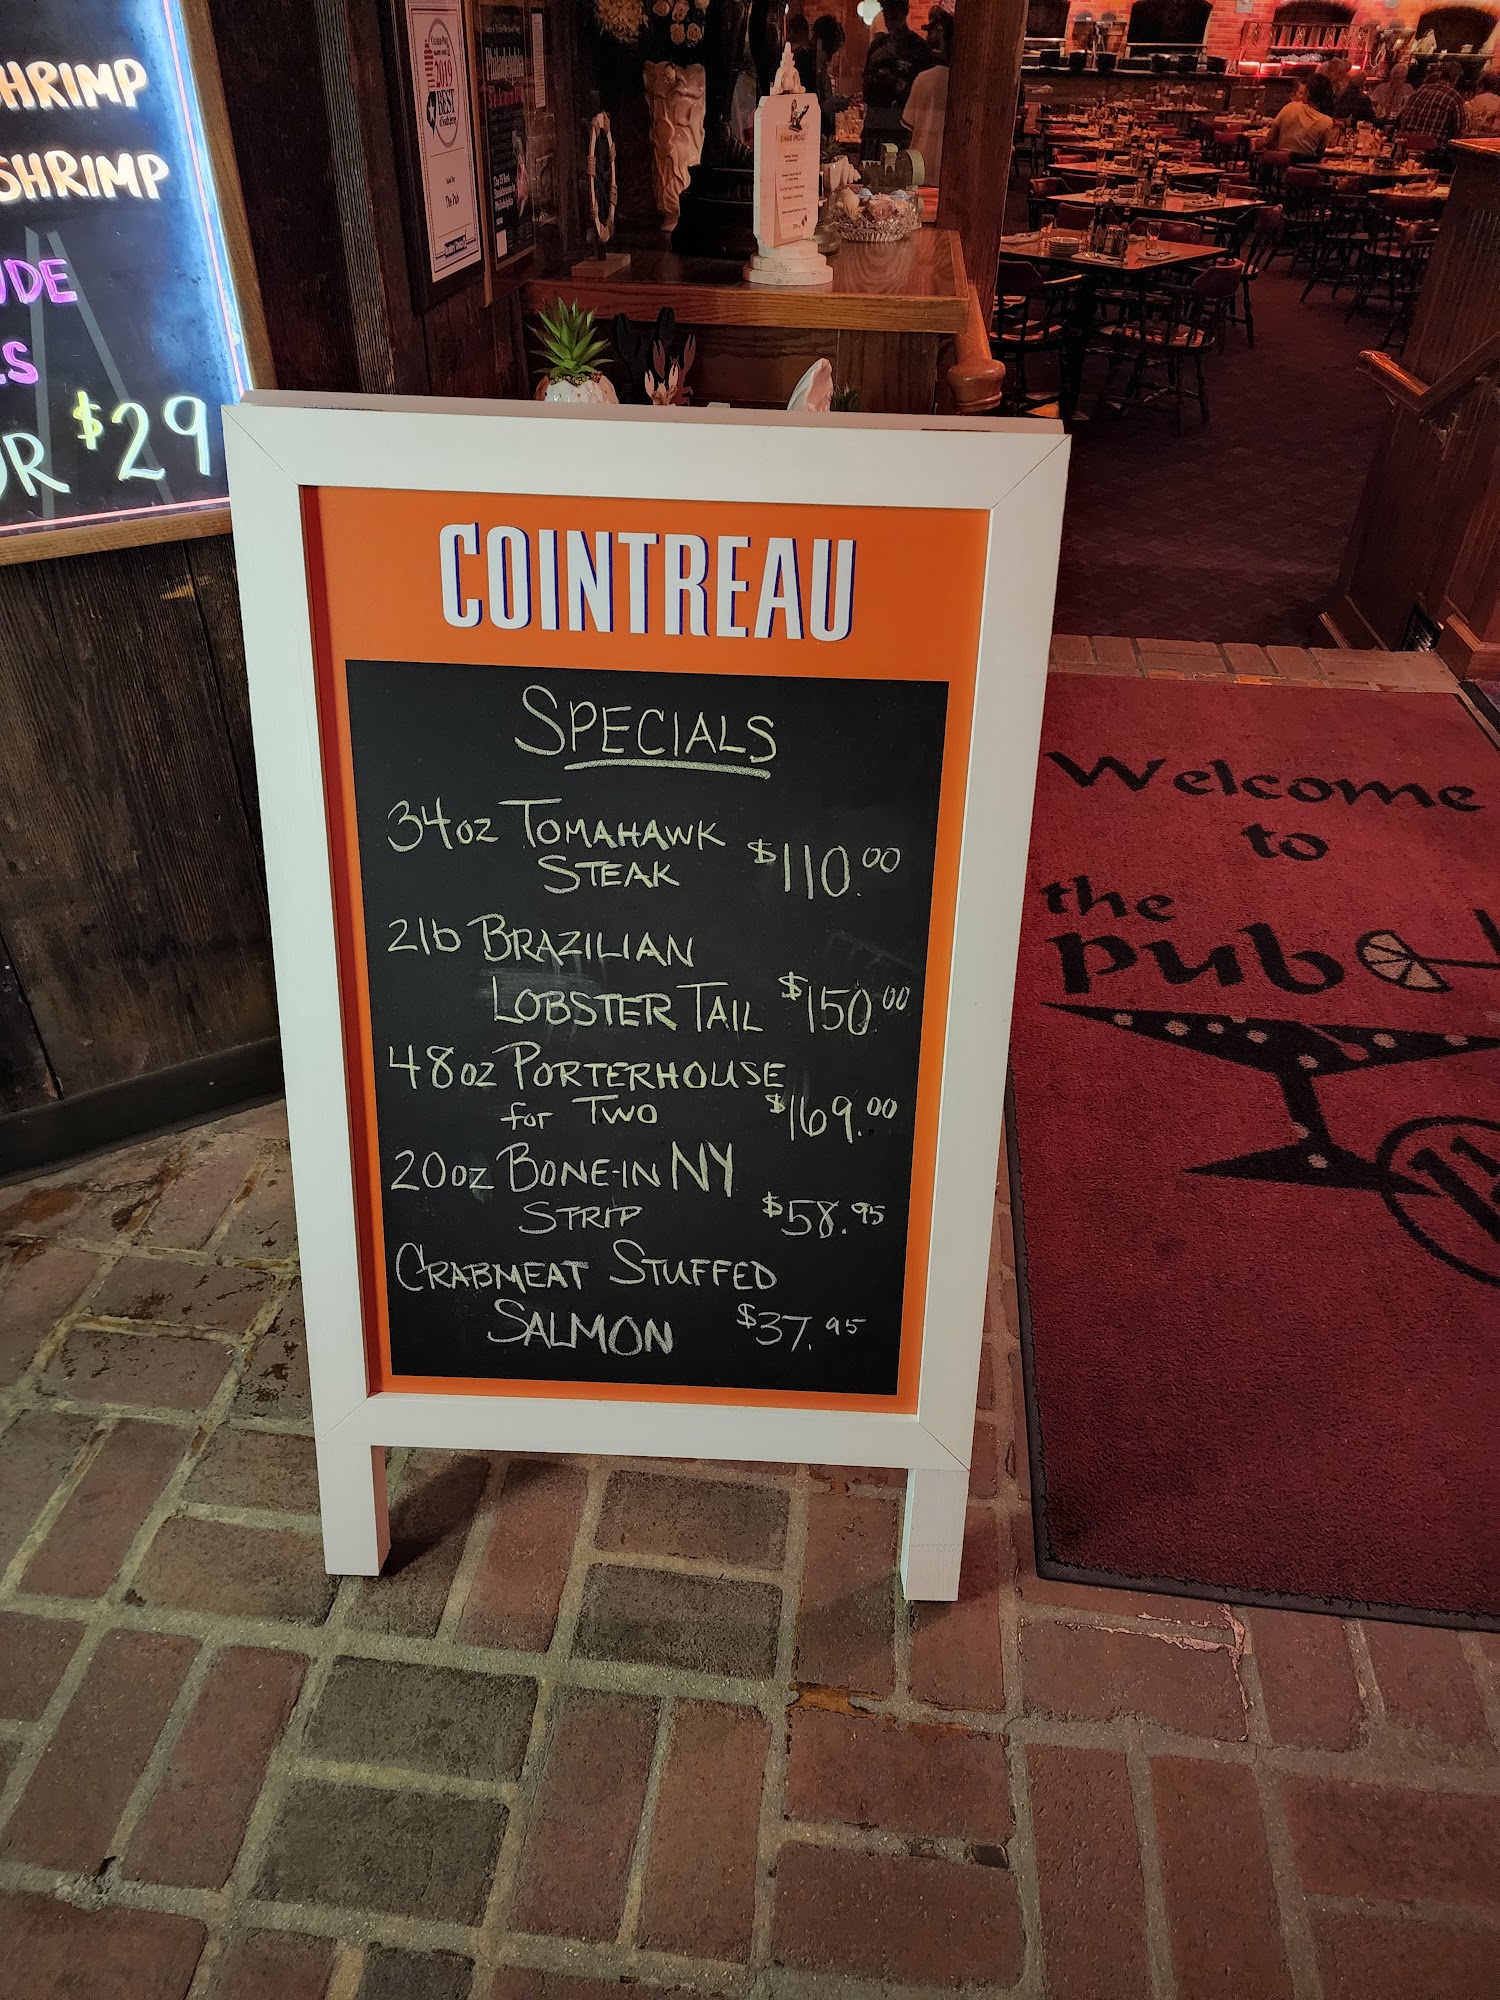 SHRIMP
SHRIMP
$29
2019
BEST
The Pub
COINTREAU
SPECIALS
34oz TOMAHAWK
STEAK $110.00
2lb BRAZILIAN
LOBSTER TAIL $150.00
48oz PORTERHOUSE
for TWO $169.00
20oz BONE-IN NY
STRIP $58.95
CRABMEAT STUFFED
SALMON $37.95
Welcome
to
the
pub